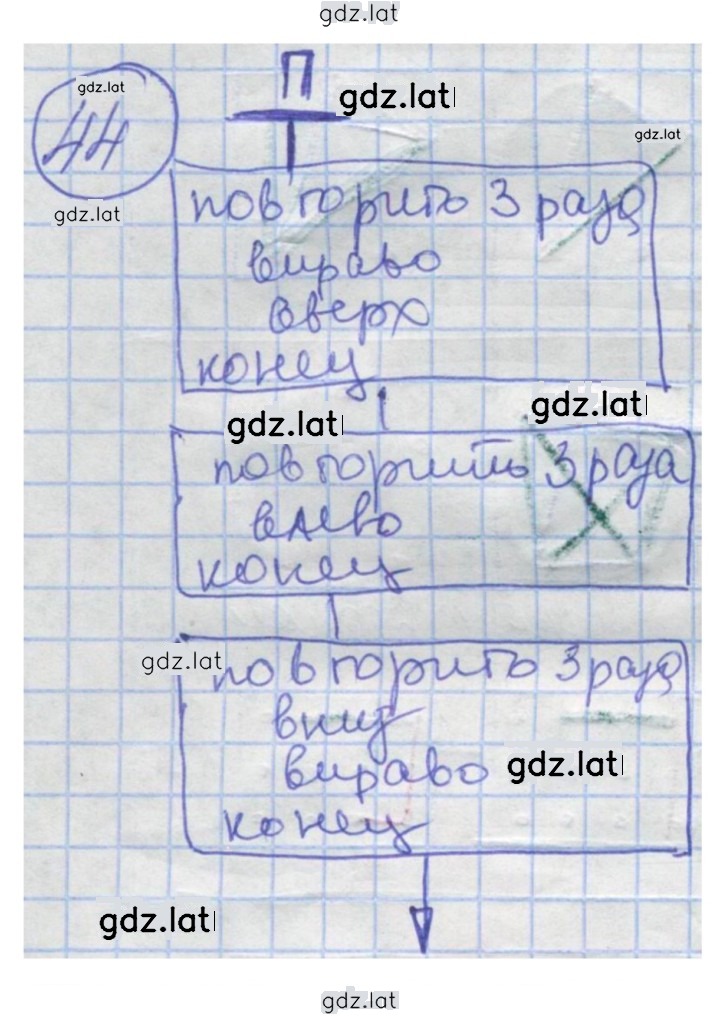 gdz.lat
gdz.lat
П
gdz.lat
44
gdz.lat
gdz.lat
повторить 3 раза
вправо
вверх
конец
gdz.lat
gdz.lat
повторить 3 раза
влево
конец
gdz.lat
повторить 3 раза
вниз
вправо
gdz.lat
конец
gdz.lat
gdz.lat